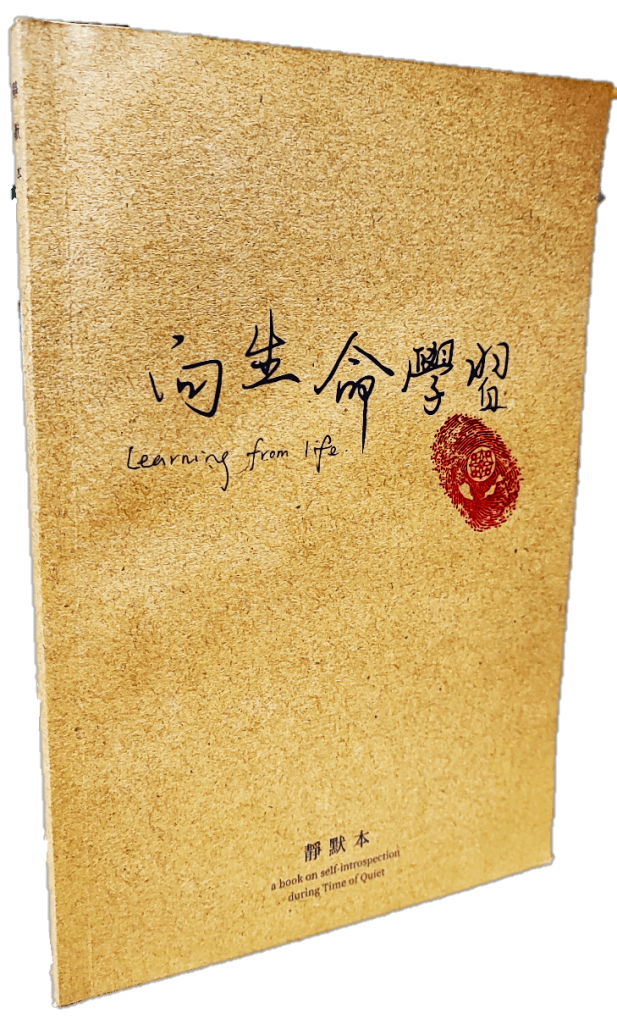 向生命學習
Learning from life.
靜默本
a book on self-introspection
during Time of Quiet